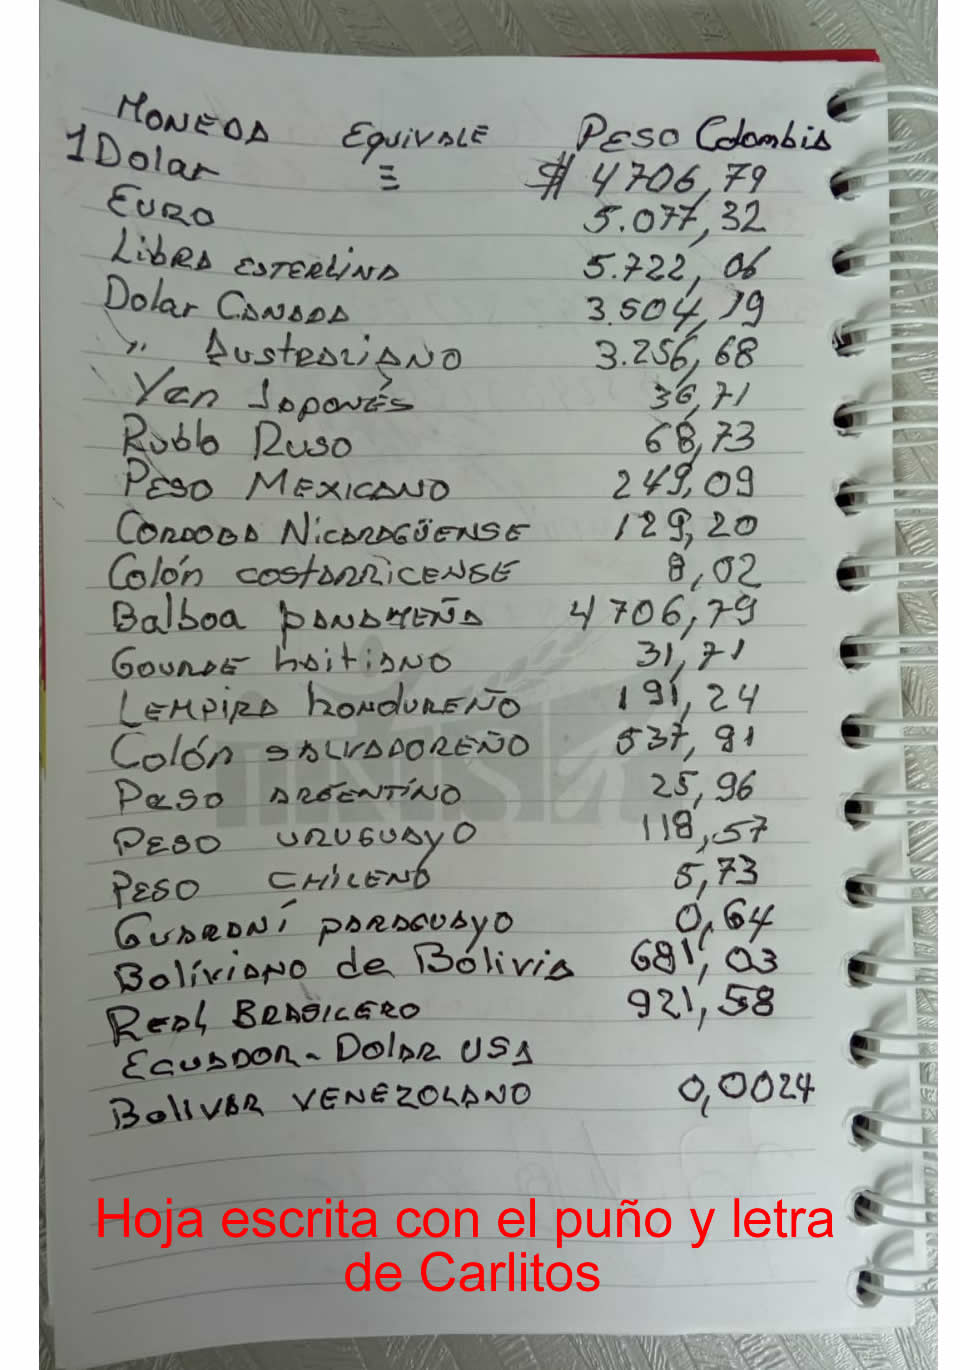 MONEDA EQUIVALE PESO Colombia
1 Dolar ≡ $ 4706,79
EURO 5.077,32
LibRA ESTERLINA 5.722,06
Dolar CANADA 3.504,19
" AustRALIANO 3.256,68
Yen JAPONÉS 36,71
Rublo Ruso 68,73
PESO MEXICANO 249,09
CORDOBA NicARAGÜENSE 129,20
Colón costARRICENSE 8,02
Balboa pANAMEÑA 4706,79
GOURDE hAitiANO 31,71
LEMPIRA hONDUREÑO 191,24
Colón SALVADOREÑO 537,91
Peso ARGENTÍNO 25,96
PESO URUGUAyO 118,57
PESO CHILENO 5,73
GUARANÍ pARAGUAyO 0,64
Bolíviano de Bolivia 681,03
REAL BRASICERO 921,58
ECUADOR - DOLAR USA
BOlIVAR VENEZOLANO 0,0024
Hoja escrita con el puño y letra
de Carlitos